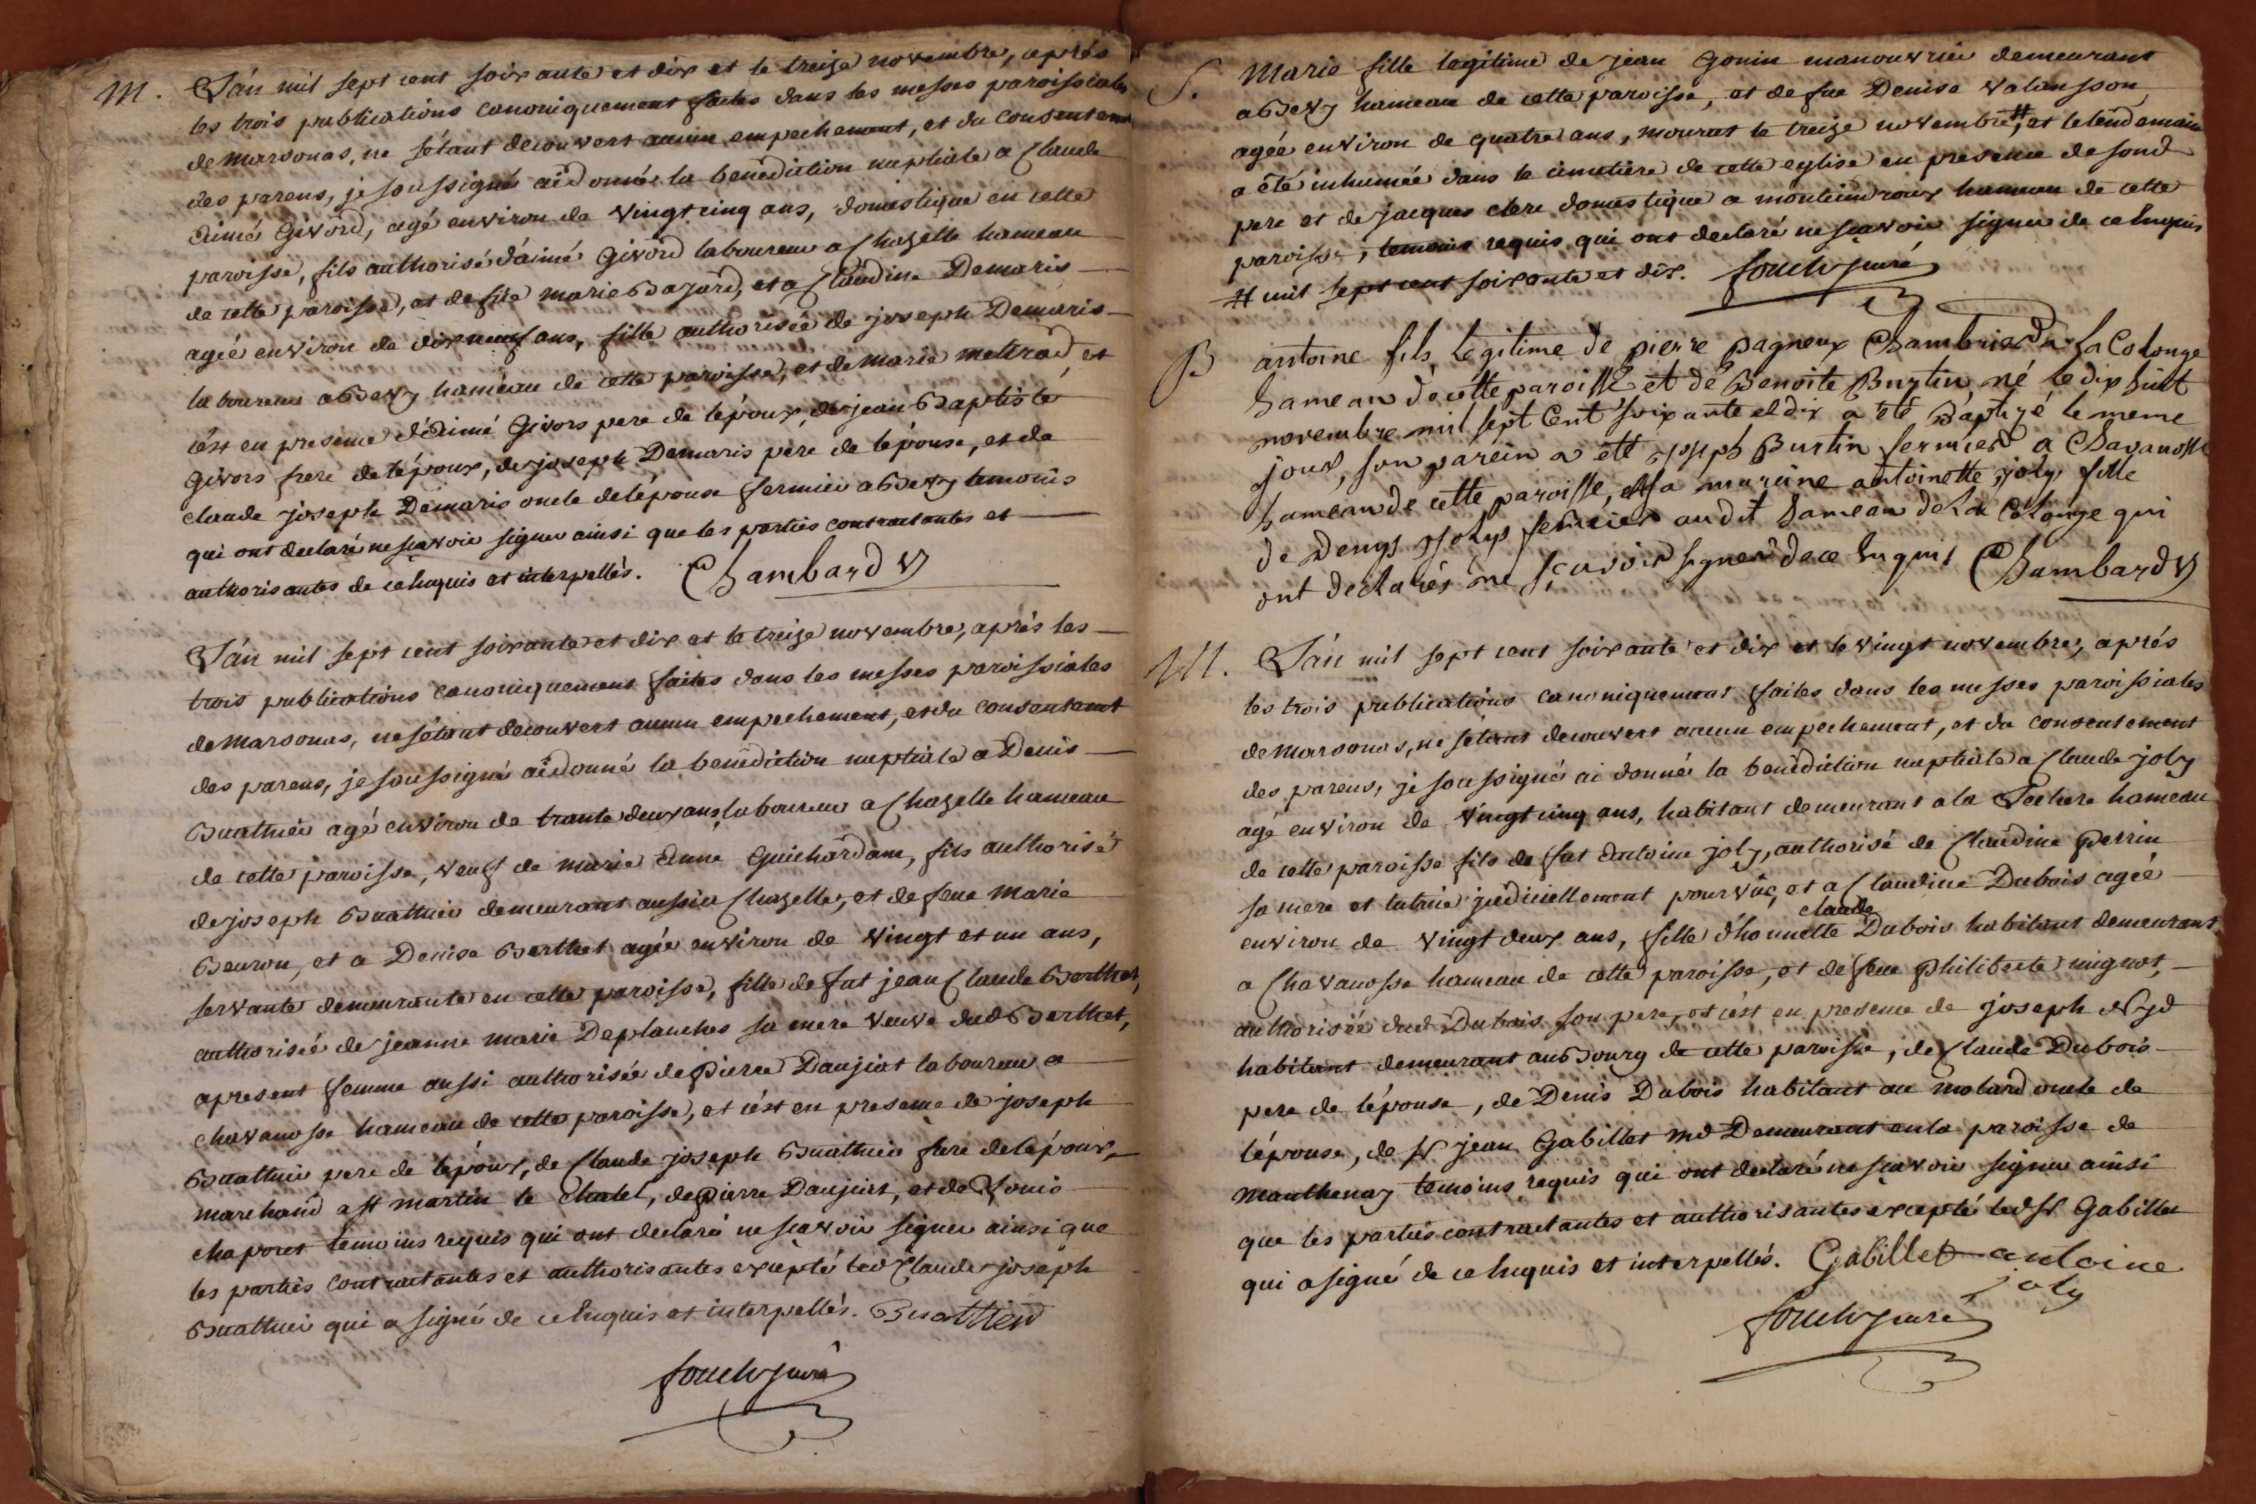 M. L'an mil sept cent soixante et dix et le treize novembre, après
les trois publications canoniquement faites dans les messes paroissiales
de marsonas, ne s'étant decouvert aucun empechement, et du consentement
des parens, je soussigné ai donné la benediction nuptiale a Claude
aimé Givord, agé environ de vingt cinq ans, domestique en cette
paroisse, fils authorisé d'aimé Givord laboureur a Chazelle hameau
de cette paroisse, et de fue marie Bajard, et a Claudine Demaris
agée environ de dix neuf ans, fille authorisée de joseph Demaris
laboureur a Bevy hameau de cette paroisse, et de marie metrad, et
c'ést en presence d'aimé Givors pere de l'époux, de jean Baptiste
Givors frere de l'époux, de joseph Demaris pere de l'épouse, et de
claude joseph Demaris oncle de l'épouse fermier a Bevy temoins
qui ont declaré ne sçavoir signer ainsi que les parties contractantes et
authorisantes de ce enquis et interpellés. Chambard v
L'an mil sept cent soixante et dix et le treize novembre, après les
trois publications canoniquement faites dans les messes paroissiales
de marsonas, ne s'étant decouvert aucun empechement, et du consentement
des parens, je soussigné ai donné la benediction nuptiale a Denis
Buathier agé environ de trante deux ans laboureur a Chazelle hameau
de cette paroisse, veuf de marie anne Guichardam, fils authorisé
de joseph Buathier demeurant aussi a Chazelle, et de feue marie
Beuron, et a Denise Berthet agée environ de vingt et un ans,
servante demeurante en cette paroisse, fille de fut jean Claude Berthet,
authorisée de jeanne marie Deplanches sa mere veuve dud Berthet,
apresent femme aussi authorisée de Pierre Daujat laboureur a
chavanosse hameau de cette paroisse, et c'ést en presence de joseph
Buathier pere de l'époux, de Claude joseph Buathier frere de l'époux,
marchand a st martin le chatel, de pierre Daujat, et de Louis
chaporet temoins requis qui ont declaré ne sçavoir signer ainsi que
les parties contractantes et authorisantes excepté led Claude joseph
Buathier qui a signé de ce enquis et interpellés. Buathier
fouchy curé
S. Marie fille legitime de jean Gonin manouvrier demeurant
a Bevy hameau de cette paroisse, et de fue Denise valansson
agée environ de quatre ans, mourut le treize novembre #, et le lendemain
a été inhumée dans le cimetière de cette eglise en presence de sond
pere et de jacques clerc domestique a montcindroux hameau de cette
paroisse, temoins requis qui ont declaré ne sçavoir signer de ce enquis
# mil sept cent soixante et dix. fouchy curé
B antoine fils legitime de pierre pagneux Chambrier a la Colonge
hameau de cette paroisse et de Benoite Burtin né le dix huit
novembre mil sept Cent soixante et dix a été Baptizé le meme
jour, son parein a été joseph Burtin fermier a Chavanosse
hameau de cette paroisse, et sa mareine antoinette joly fille
de Denys joly fermier audit hameau de la Colonge qui
ont declarés ne sçavoir signer de ce enquis Chambard v
M. L'an mil sept cent soixante et dix et le vingt novembre, après
les trois publications canoniquement faites dans les messes paroissiales
de marsonas, ne s'étant decouvert aucun empechement, et du consentement
des parens, je soussigné ai donné la benediction nuptiale a Claude joly
agé environ de vingt cinq ans, habitant demeurant a la Lechere hameau
de cette paroisse fils de fut antoine joly, authorisé de Claudine perrin
sa mere et tutrice judiciellement pourvüe, et a Claudine Dubois agée
environ de vingt deux ans, fille d'honnette claude Dubois habitant demeurant
a Chavanosse hameau de cette paroisse, et de feue philiberte mignot,
authorisée dud Dubois son pere, et c'ést en presence de joseph
habitant demeurant au Bourg de cette paroisse, de Claude Dubois
pere de l'épouse, de Denis Dubois habitant au molard oncle de
l'épouse, de sr jean Gabillet md Demeurant en la paroisse de
manthenay temoins requis qui ont declaré ne sçavoir signer ainsi
que les parties contractantes et authorisantes excepté led sr Gabillet
qui a signé de ce enquis et interpellés. Gabillet antoine
joly
fouchy curé